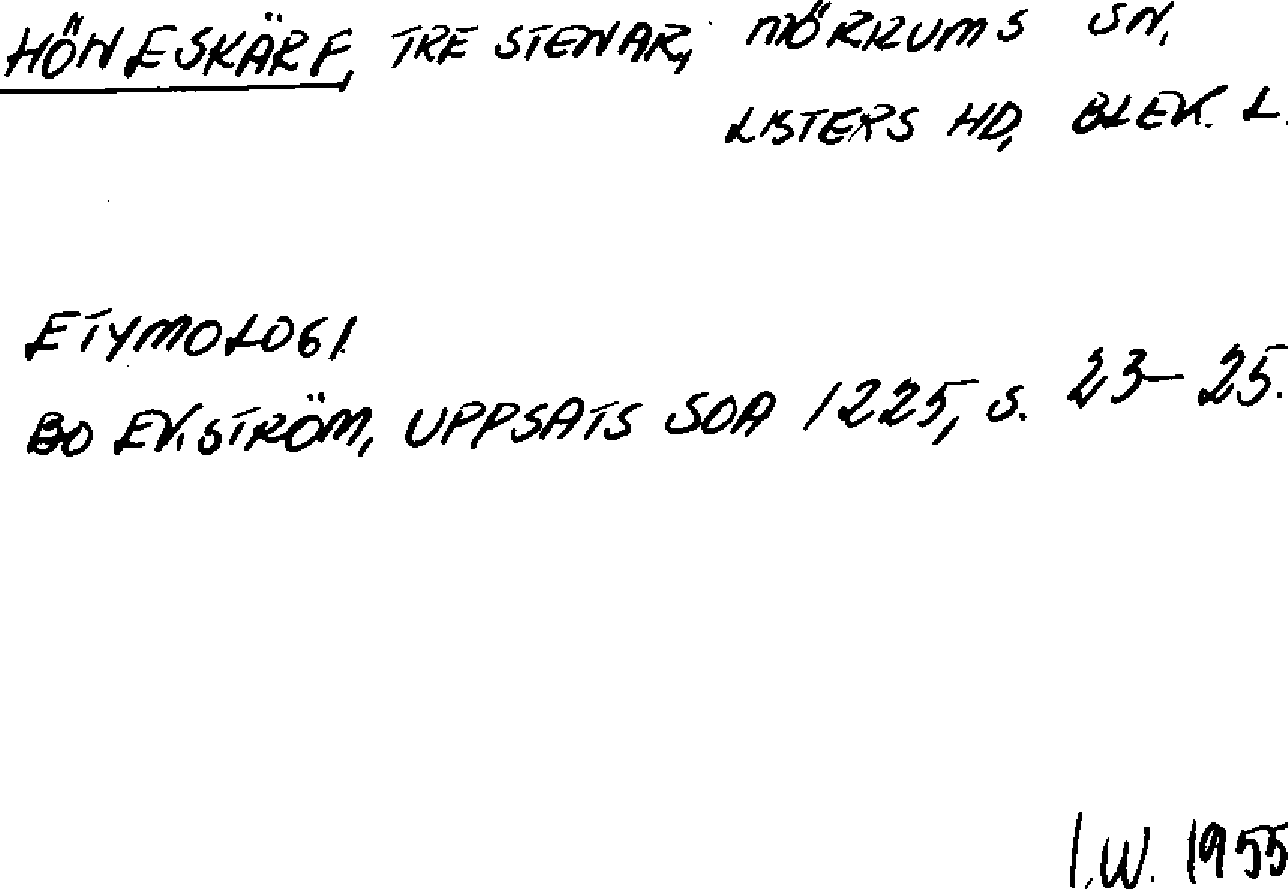 HÖNESKÄRF, TRE STENAR, MÖRRUMS SN,
LISTERS HD, BLEK. L.
ETYMOLOGI
BO EKSTRÖM, UPPSATS SOA 1225, S. 23-25.
I.W. 1955